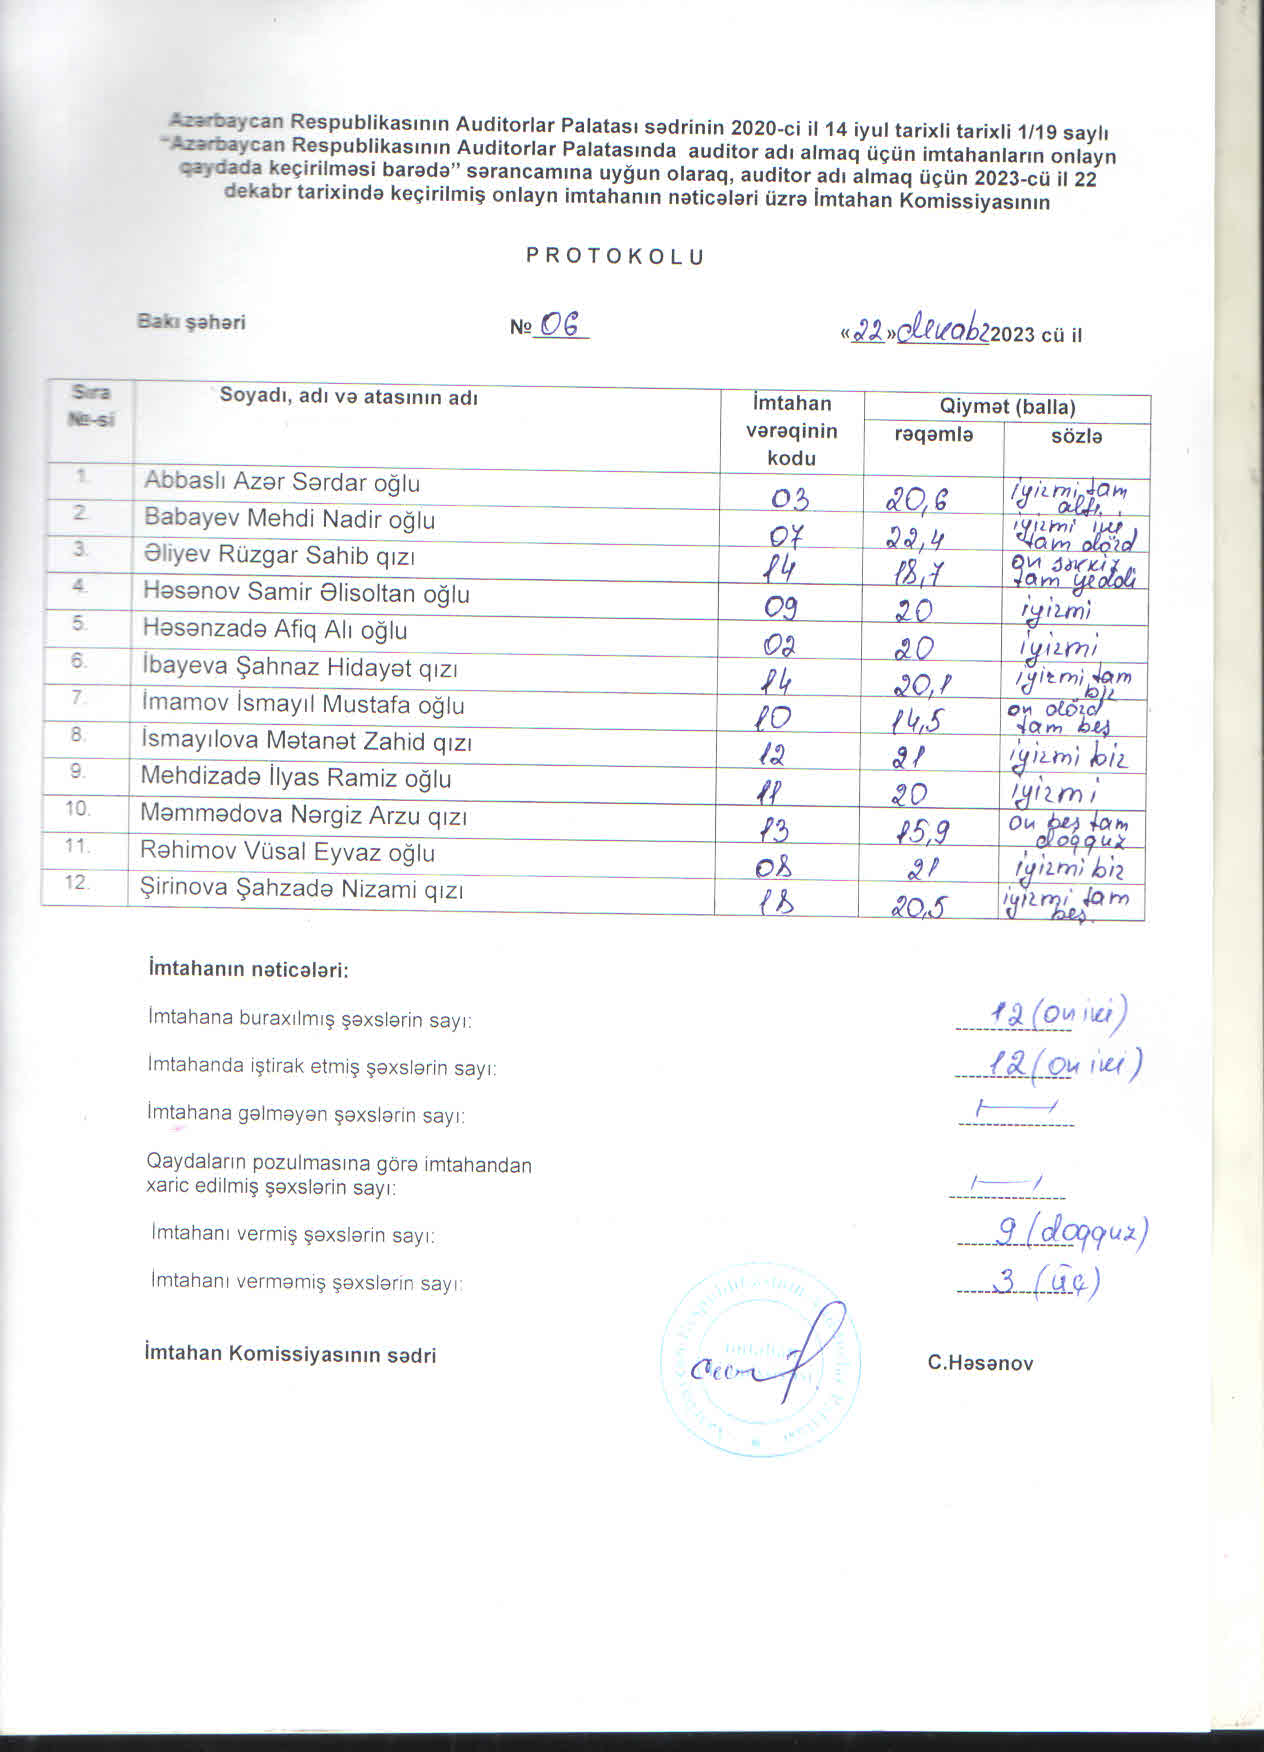 Azərbaycan Respublikasının Auditorlar Palatası sədrinin 2020-ci il 14 iyul tarixli tarixli 1/19 saylı
“Azərbaycan Respublikasının Auditorlar Palatasında auditor adı almaq üçün imtahanların onlayn
qaydada keçirilməsi barədə” sərancamına uyğun olaraq, auditor adı almaq üçün 2023-cü il 22
dekabr tarixində keçirilmiş onlayn imtahanın nəticələri üzrə İmtahan Komissiyasının
P R O T O K O L U
Bakı şəhəri № 06 «22» dekabr 2023 cü il
Sıra №-si Soyadı, adı və atasının adı İmtahan vərəqinin kodu Qiymət (balla) rəqəmlə sözlə
1. Abbaslı Azər Sərdar oğlu 03 20,6 iyirmi tam altı
2. Babayev Mehdi Nadir oğlu 07 22,4 iyirmi iki tam dörd
3. Əliyev Rüzgar Sahib qızı 14 18,7 on səkkiz tam yeddi
4. Həsənov Samir Əlisoltan oğlu 09 20 iyirmi
5. Həsənzadə Afiq Alı oğlu 02 20 iyirmi
6. İbayeva Şahnaz Hidayət qızı 14 20,1 iyirmi tam bir
7. İmamov İsmayıl Mustafa oğlu 10 14,5 on dörd tam beş
8. İsmayılova Mətanət Zahid qızı 12 21 iyirmi bir
9. Mehdizadə İlyas Ramiz oğlu 11 20 iyirmi
10. Məmmədova Nərgiz Arzu qızı 13 15,9 on beş tam doqquz
11. Rəhimov Vüsal Eyvaz oğlu 08 21 iyirmi bir
12. Şirinova Şahzadə Nizami qızı 18 20,5 iyirmi tam beş
İmtahanın nəticələri:
İmtahana buraxılmış şəxslərin sayı: 12 (on iki)
İmtahanda iştirak etmiş şəxslərin sayı: 12 (on iki)
İmtahana gəlməyən şəxslərin sayı:
Qaydaların pozulmasına görə imtahandan
xaric edilmiş şəxslərin sayı:
İmtahanı vermiş şəxslərin sayı: 9 (doqquz)
İmtahanı verməmiş şəxslərin sayı: 3 (üç)
İmtahan Komissiyasının sədri C.Həsənov